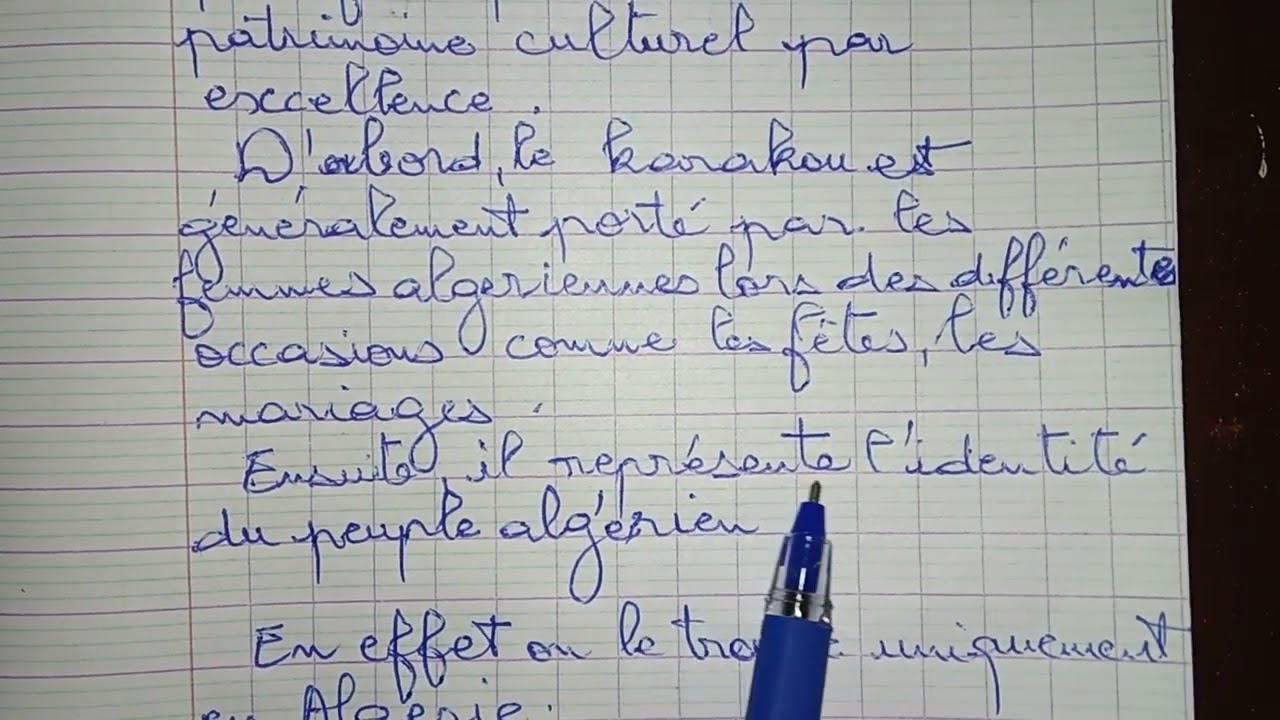 patrimoine culturel par
excellence.
D'abord, le karakou est
généralement porté par les
femmes algeriennes lors des différente
occasions comme les fêtes, les
mariages.
Ensuite, il représente l'identité
du peuple algérien
En effet on le uniquement
en Algérie.